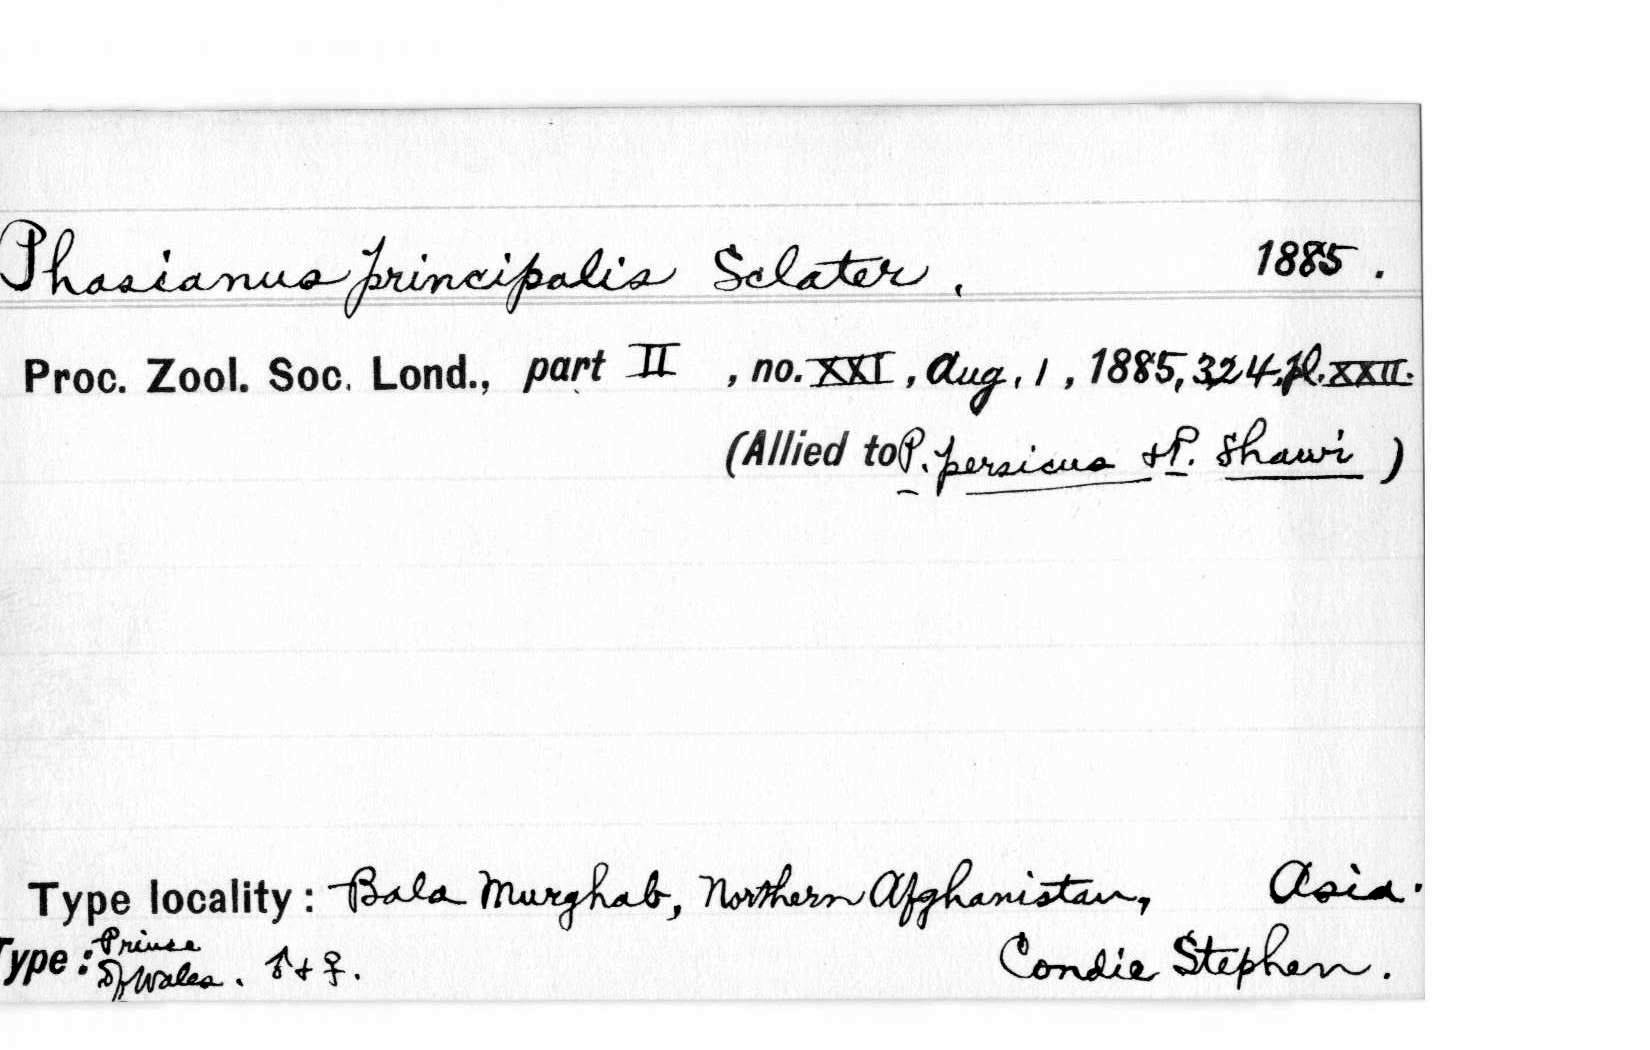 Phasianus principalis Sclater. 1885.
Proc. Zool. Soc. Lond., part II, no. XXI, Aug. 1, 1885, 324, pl. XXII.
(Allied to P. persicus & P. Shawi)
Type locality: Bala Murghab, Northern Afghanistan, Asia.
Type: Prince of Wales. ♂ & ♀. Condie Stephen.